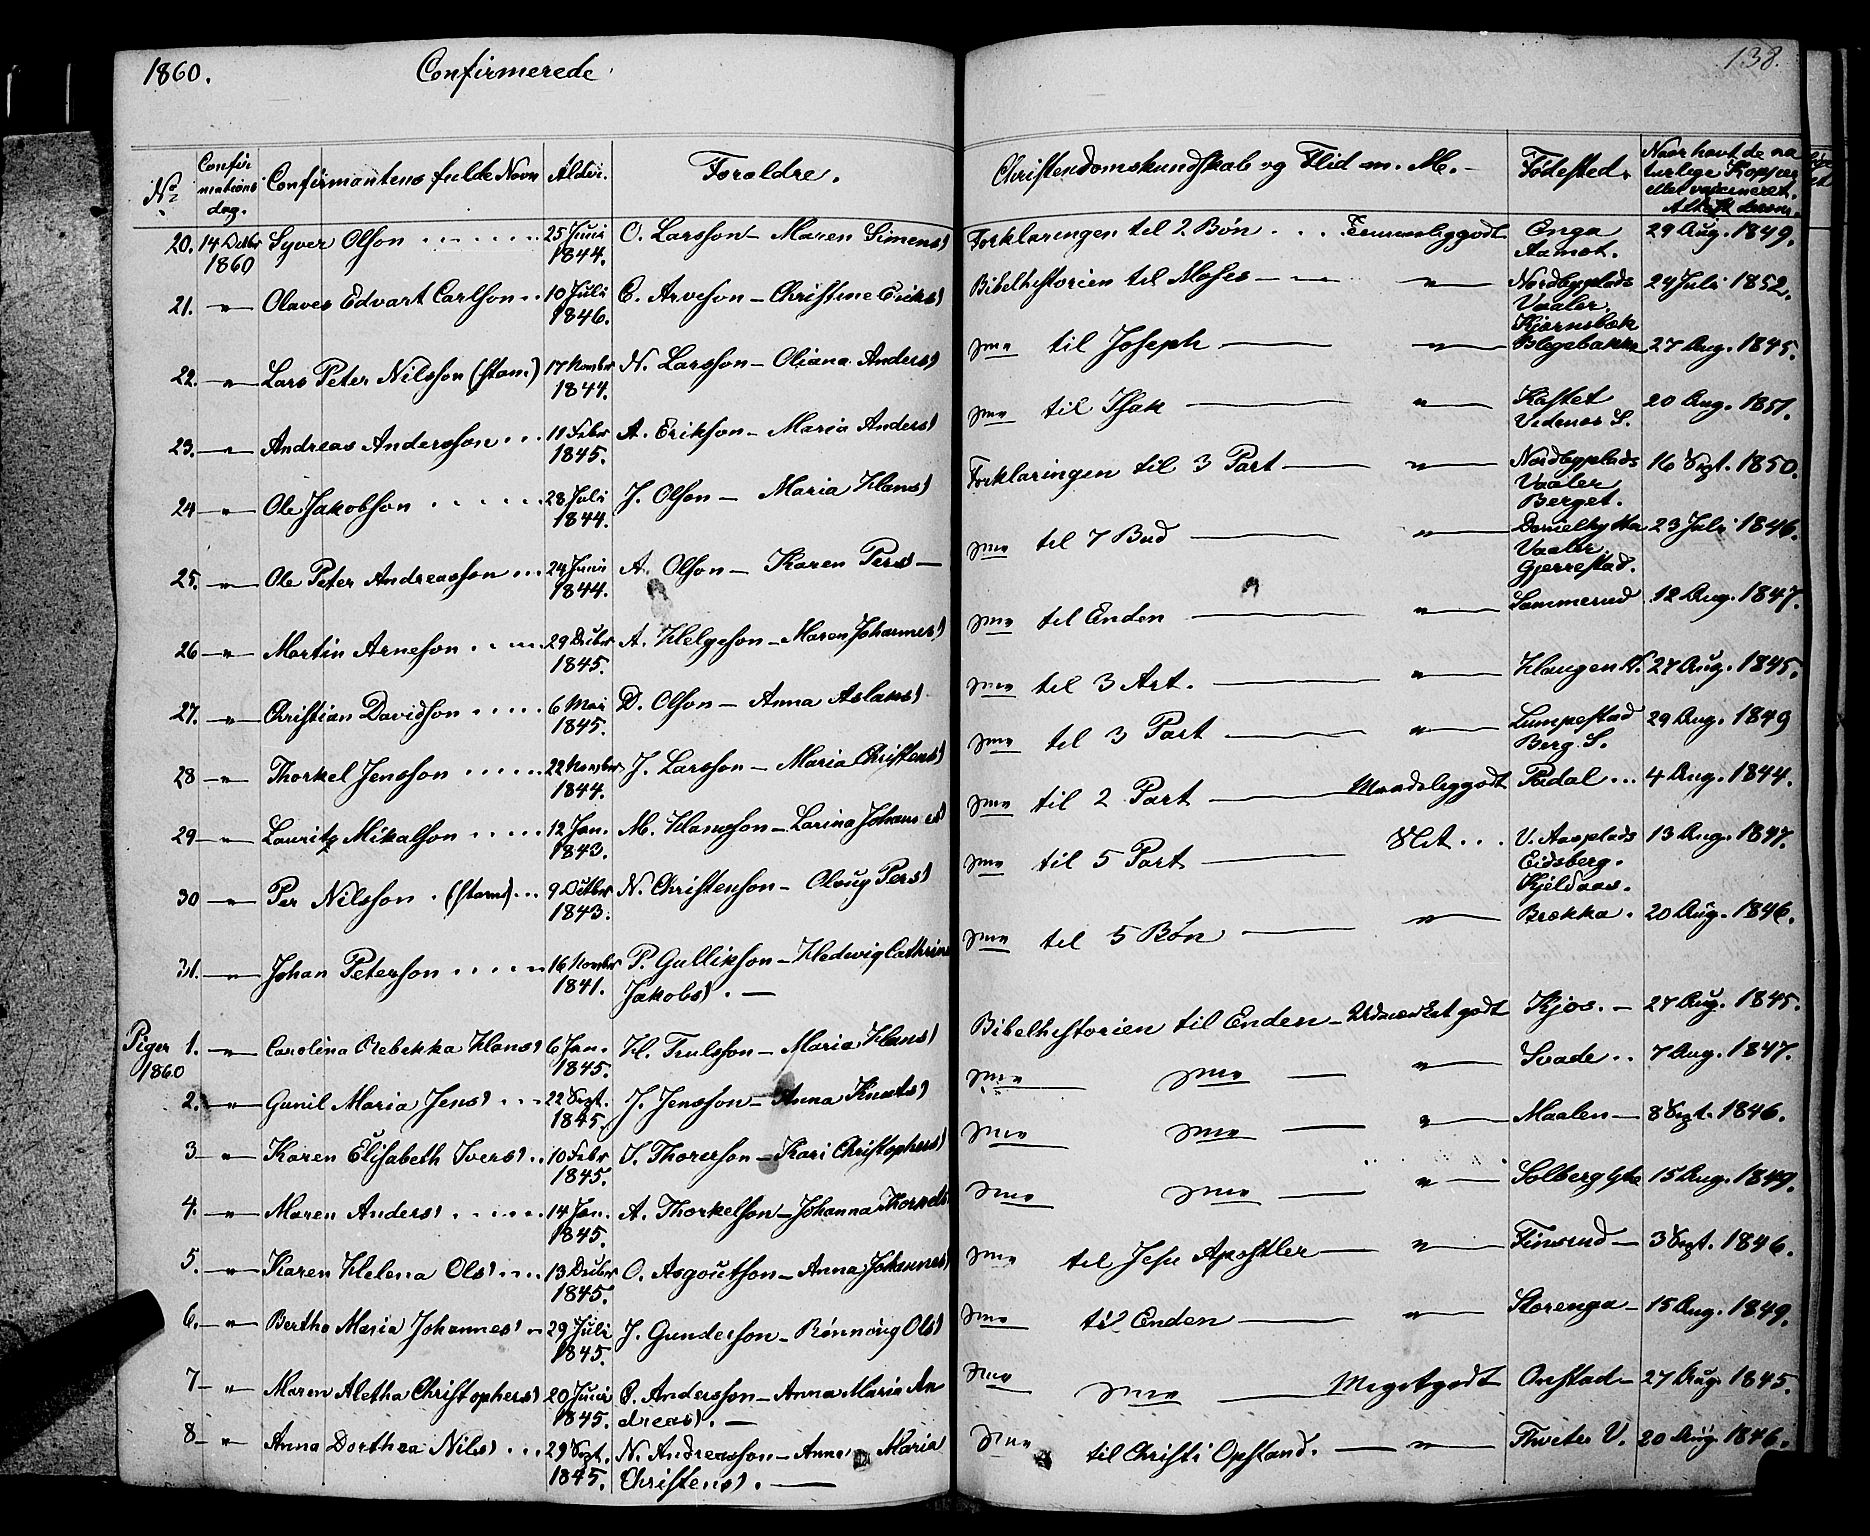 1860. Confirmerede. 138.
No. Confirmations dag. Confirmantens fulde Navn Alder. Forældre. Christendomskundskab og Flid m. M. Fødested. Naar havt de naturlege Kopper eller vaccineret.
20. 14 Octbr 1860 Syver Olsson 25 Juni 1844. O. Larsson – Maren Simens) Forklaringen til 2 Bøn Temmeleggodt Enga Aamot. 29 Aug. 1849.
21. " Olaves Edvart Carlson 10 Juli 1846. C. Arveson – Christine Eriks) Bibelhistorien til Moses " Nordbyplads Vaaler. 24 Juli 1852.
22. " Lars Peter Nilsson (stam.) 17 Novbr 1844. N. Larsson – Oliana Anders) " til Joseph " Kjærnsbæk Blegebakken 27 Aug. 1845.
23. " Andreas Andersson 11 Febr 1845. A. Erikson – Maria Anders) " til Isak " Kastet S. 20 Aug. 1851.
24 " Ole Jakobson 28 Juli 1844. J. Olson – Maria Hans) Forklaringen til 3 Part " Nordbyplads Vaaler 16 Sept. 1850.
25. " Ole Peter Andreasson 24 Juni 1844. A. Olson – Karen Pers – " til 7 Bud " Berget. Vaaler 23 Juli 1846.
26 " Martin Arneson 29 Decbr 1845. A. Helgeson – Maren Johannes) " til Enden " Gjerrestad. Sommerud 12 Aug. 1847.
27. " Christian Davidson 6 Mai 1845. D. Olson – Anna Aslaks) " til 3 Art. " Haugen N. 27 Aug. 1845.
28 " Thorkel Jensson 22 Novbr 1844. J. Larsson – Maria Christens) " til 3 Part " Lumpestad Berg. S. 29 Aug. 1849
29 " Lauritz Mikalson 12 Jan. 1843. M. Hansson – Larina Johannes) " til 2 Part Maadeleggodt Padal 4 Aug. 1844.
30 " Per Nilsson (stam) 9 Octbr 1843. N. Christenson – Oloug Pers) " til 5 Part Slet V. Aasplads Eidsberg. 13 Aug. 1847.
31. " Johan Peterson 16 Novbr 1841. P. Gullikson – Hedevig Cathrine Jakobs). " til 5 Bøn " Kjeldaas. Brekka. 20 Aug. 1846.
Piger 1860
1. " Carolina Rebekka Hans) 6 Jan. 1845. H. Trulsson – Maria Hans) Bibelhistorien til Enden – Udmærket godt Kjos. 27 Aug. 1845.
2. " Gunil Maria Jens) 22 Sept. 1845. J. Jensson – Anna Knuts) " " " Svade 7 Aug. 1847.
3 " Karen Elisabeth Ivers) 10 Febr 1845. I. Thorerson – Kari Christophers) " " " Maalen 8 Sept. 1846.
4. " Maren Anders) 14 Jan. 1845. A. Thorkelson – Johanna Thorkels) " " " Solberg 15 Aug. 1849.
5. " Karen Helena Ols) 13 Decbr 1845. O. Asgoutson – Anna Johannes) " til Jesu Apostler " Finsrud 3 Sept. 1846.
6. " Bertha Maria Johannes) 29 Juli 1845. J. Gunderson – Rønnaug Ols) " til Enden " Storenga 15 Aug. 1849.
7 " Maren Aletha Christophers) 20 Juni 1845. C. Andersson – Anna Maria Andreas). " " Megetgodt Onstad 27 Aug. 1845.
8 " Anna Dorthea Nils) 29 Sept. 1845. N. Andreasson – Anne Maria Christens). " til Christi Opstand. " Thveter V. 20 Aug. 1846.